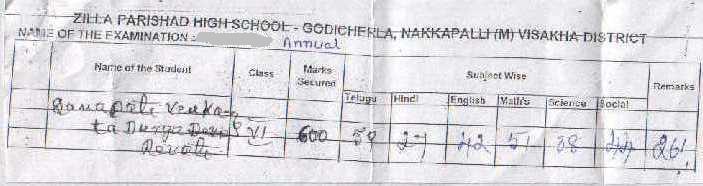 ZILLA PARISHAD HIGH SCHOOL - GODICHERLA, NAKKAPALLI (M) VISAKHA DISTRICT
NAME OF THE EXAMINATION : Annual
Name of the Student Class Marks Secured Subject Wise Remarks
Telugu Hindi English Maths Science Social
Ganapati Venka-
ta Durga Devi VI 600 59 27 42 51 38 44 261
Revati